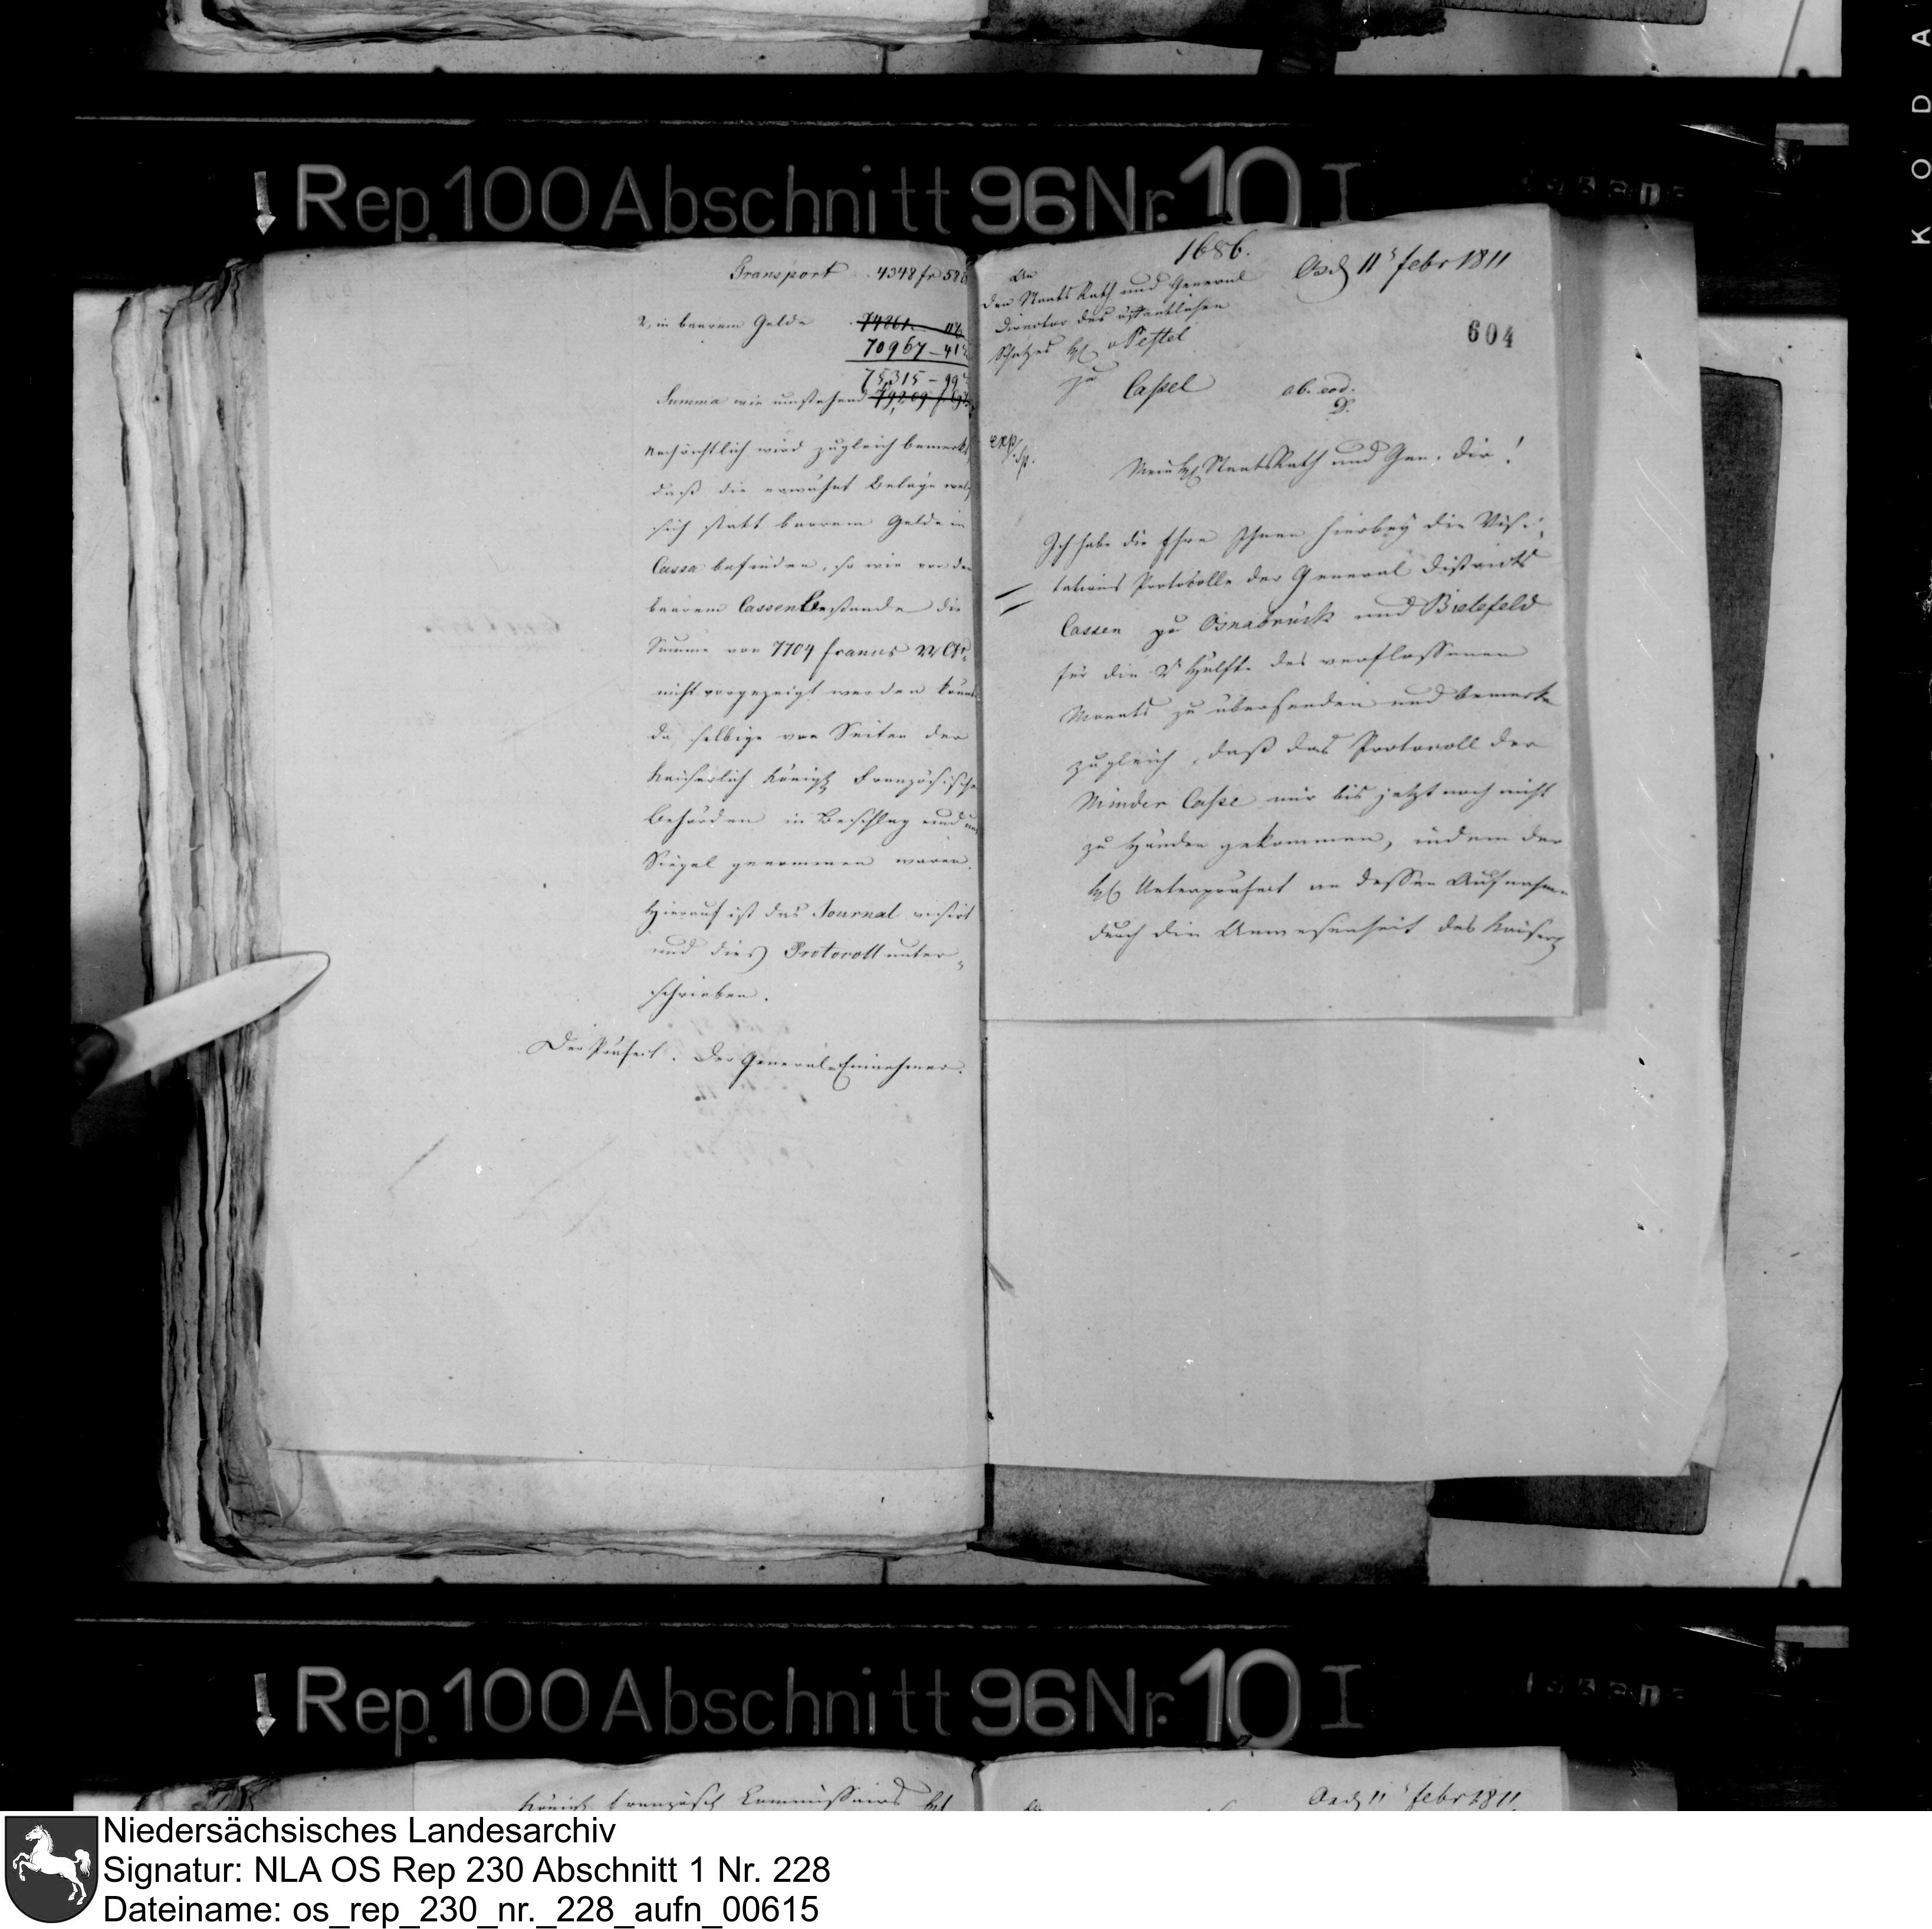 KODA
Rep. 100 Abschnitt 96 Nr. 10 I
Transport 4348 fr 58
2, in baarem Gelde 74861
70967 – 41
75,315 – 99
Summa wie umstehend 79,209
wird zugleich bemerkt,
daß die erwähnt Belege
sich statt baarem Gelde in
Cassa befinden, so wie von dem
baarem Cassen Bestande die
Summe von 7704 francs 22 Cts
nicht vorgezeigt werden konnte
da selbige von Seiten der
Kaiserlich Königl Französischen
Behörden in Beschlag und unter
Siegel genommen waren.
Hierauf ist das Journal visirt
und dies Protocoll unter-
schrieben.
Der Präfect. Der General-Einnehmer.
1686.
Osn d 11 febr 1811
An
den Staats Rath und General
Director des öffentlichen
Schatzes H v Pestel
zu Cassel
ab. eod.
D.
604
exp.
Mein H Staats Rath und Gen. Dir!
Ich habe die Ehre Ihnen hierbey die Visi-
tations Protocolle der General Districts
Cassen zu Osnabrück und Bielefeld
für die 2 Hälfte des verflossenen
Monats zu übersenden und bemerke
zugleich, daß das Protocoll der
Minder Casse mir bis jetzt noch nicht
zu Händen gekommen, indem der
H Unterpräfect an dessen Aufnahme
durch die Anwesenheit des Kaiserl
Rep. 100 Abschnitt 96 Nr. 10 I
Königl französisch Commissairs
Osn d 11 febr 1811
Niedersächsisches Landesarchiv
Signatur: NLA OS Rep 230 Abschnitt 1 Nr. 228
Dateiname: os_rep_230_nr._228_aufn_00615